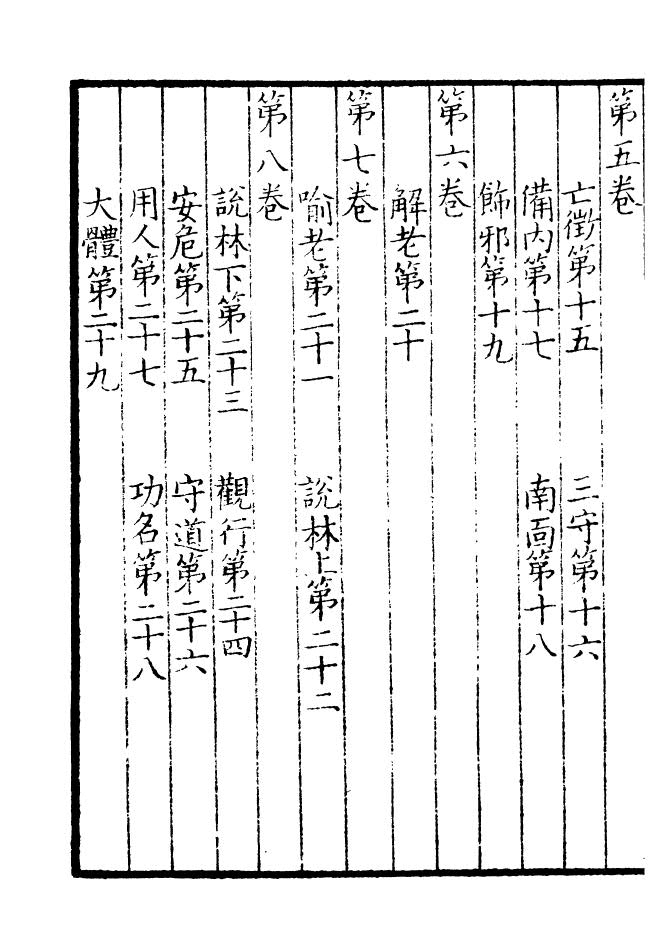 第五卷
亡徵第十五　三守第十六
備内第十七　南面第十八
飾邪第十九
第六卷
解老第二十
第七卷
喻老第二十一　說林上第二十二
第八卷
說林下第二十三　觀行第二十四
安危第二十五　守道第二十六
用人第二十七　功名第二十八
大體第二十九